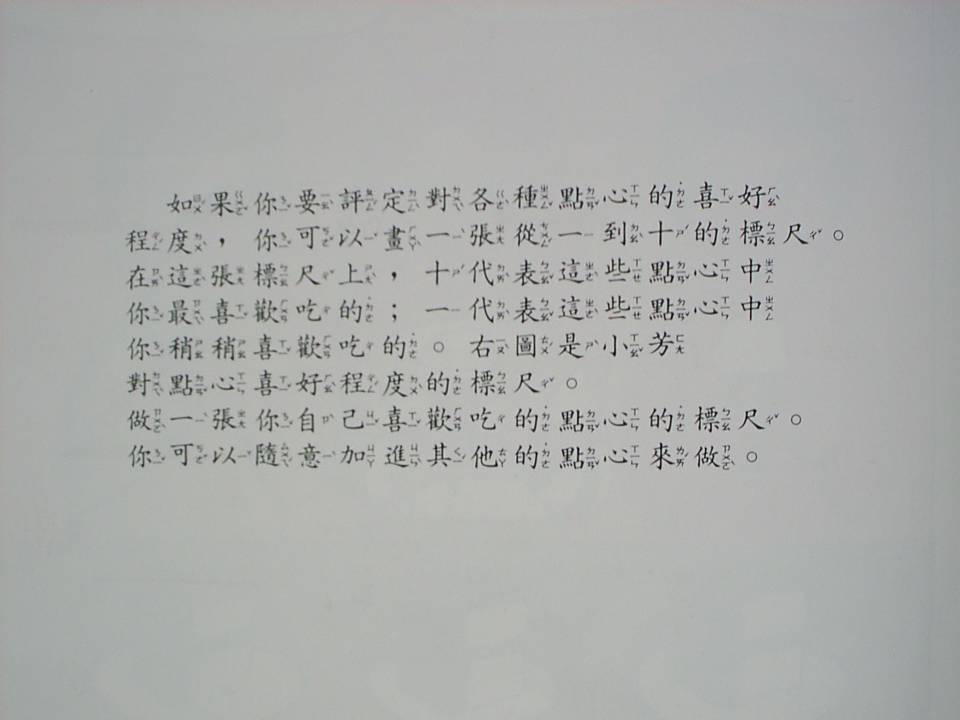 如果你要評定對各種點心的喜好
程度，你可以畫一張從一到十的標尺。
在這張標尺上，十代表這些點心中
你最喜歡吃的；一代表這些點心中
你稍稍喜歡吃的。右圖是小芳
對點心喜好程度的標尺。
做一張你自己喜歡吃的點心的標尺。
你可以隨意加進其他的點心來做。